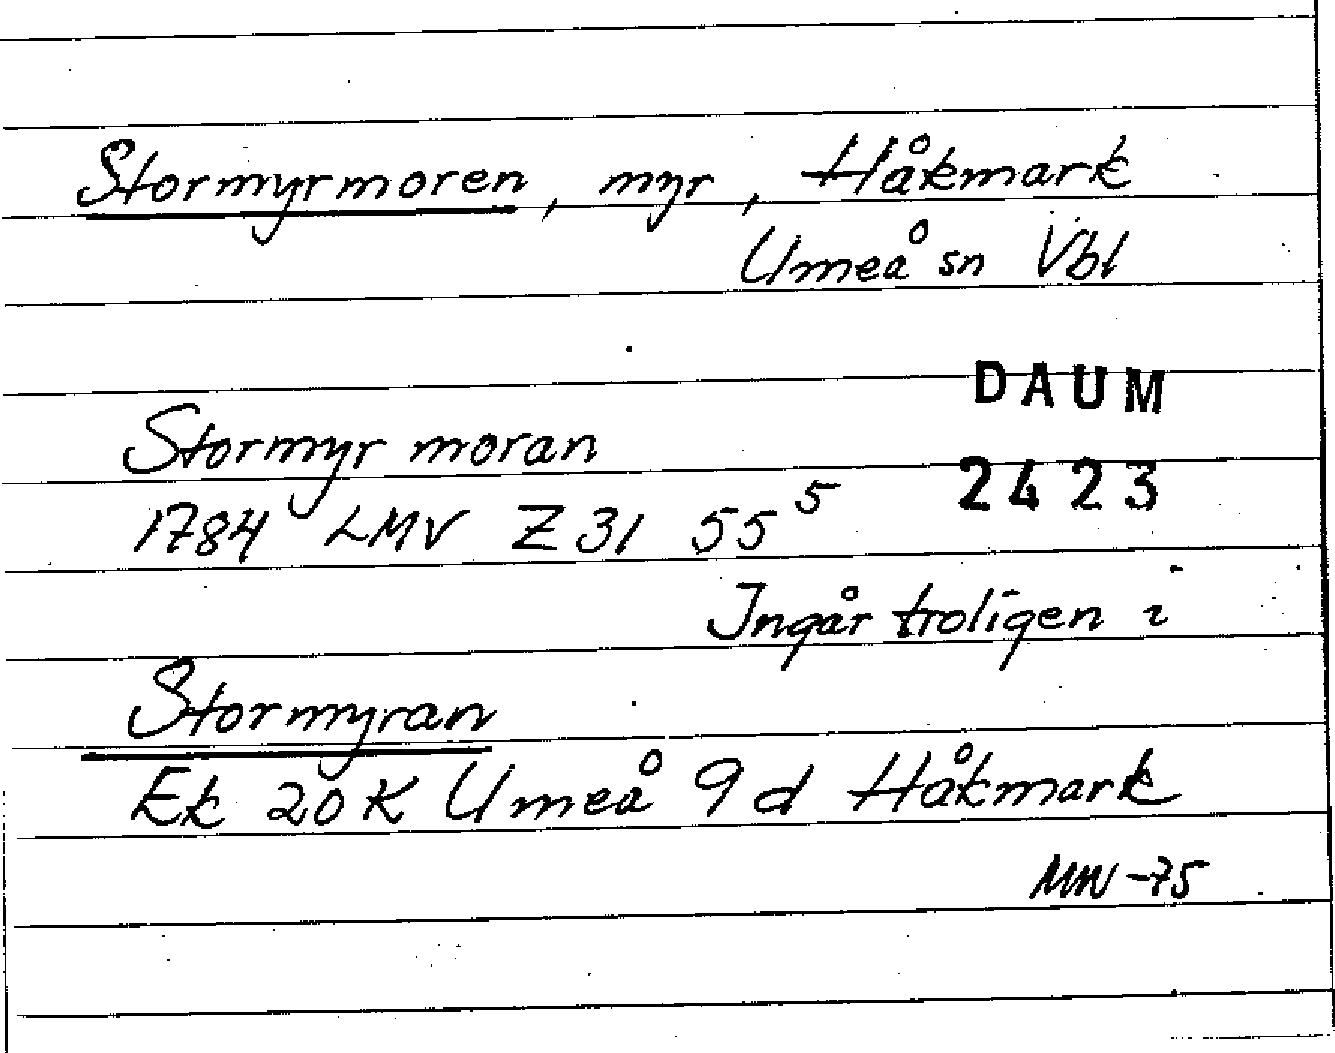 Stormyrmoren, myr, Håkmark
Umeå sn Vbl
DAUM
Stormyr moran
2423
1784 LMV Z 31 55⁵
Ingår troligen i
Stormyran
Ek 20K Umeå 9d Håkmark
MW -75